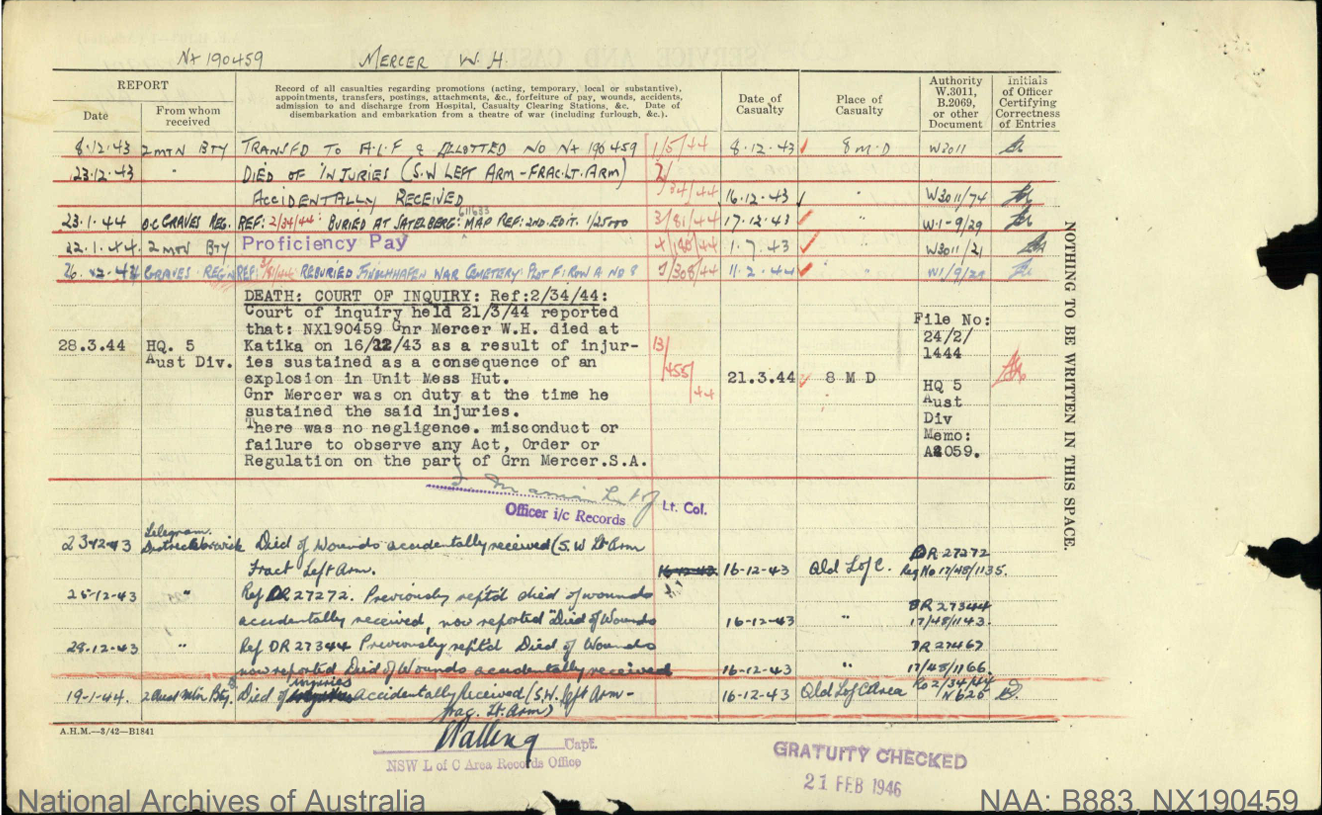 NX190459 MERCER W.H.
REPORT
Date
From whom received
Record of all casualties regarding promotions (acting, temporary, local or substantive),
appointments, transfers, postings, attachments, &c., forfeiture of pay, wounds, accidents,
admission to and discharge from Hospital, Casualty Clearing Stations, &c. Date of
disembarkation and embarkation from a theatre of war (including furlough, &c.).
Date of Casualty
Place of Casualty
Authority W.3011, B.2069, or other Document
Initials of Officer Certifying Correctness of Entries
8.12.43 2 MTN BTY TRANSFD TO A.I.F & ALLOTTED NO NX 190459 1/5/44 8.12.43 8 M.D W3011
23.12.43 " DIED OF INJURIES (S.W LEFT ARM - FRAC. LT. ARM) 2/
ACCIDENTALLY RECEIVED 34/44 16.12.43 " W3011/74
23.1.44 O.C GRAVES REG. REF: 2/34/44: BURIED AT SATELBERG: 611633 MAP REF: 2ND. EDIT. 1/25000 3/81/44 17.12.43 " W.1-9/29
22.1.44. 2 MTN BTY Proficiency Pay 1.7.43 " W3011/21
GRAVES REGN REF: 3/81/44 REBURIED FINSCHHAFEN WAR CEMETERY PLOT F: ROW A NO 8 /308/44 11.2.44 " W1/9/29
DEATH: COURT OF INQUIRY: Ref:2/34/44:
Court of inquiry held 21/3/44 reported
that: NX190459 Gnr Mercer W.H. died at
28.3.44 HQ. 5 Katika on 16/12/43 as a result of injur-
Aust Div. ies sustained as a consequence of an
explosion in Unit Mess Hut.
Gnr Mercer was on duty at the time he
sustained the said injuries.
There was no negligence. misconduct or
failure to observe any Act, Order or
Regulation on the part of Grn Mercer.S.A.
13/455/44
21.3.44 8 M D
File No:
24/2/
1444
HQ 5
Aust
Div
Memo:
A2059.
Lt. Col.
Officer i/c Records
23-12-43 Telegram Died of Wounds accidentally received (S.W Lt Arm DR 27272
Fract Left Arm. 16-12-43 16-12-43 Qld L of C. Reg No 17/48/1135.
25-12-43 " Ref DR 27272. Previously rept'd died of wounds DR 27344
accidentally received, now reported "Died of Wounds 16-12-43 " 17/48/1143.
29-12-43 " Ref DR 27344 Previously rept'd Died of Wounds DR 27467
now reported Died of Wounds accidentally received 16-12-43 " 17/48/1166.
19-1-44. 2 Aust Mtn Bty. Died of injuries accidentally Received (S.W. left Arm - 16-12-43 Qld L of C Area Ro 2/34/44
frac. Lt. Arm) N625
A.H.M.—3/42—B1841
Capt.
NSW L of C Area Records Office
GRATUITY CHECKED
21 FEB 1946
NOTHING TO BE WRITTEN IN THIS SPACE.
National Archives of Australia
NAA: B883, NX190459